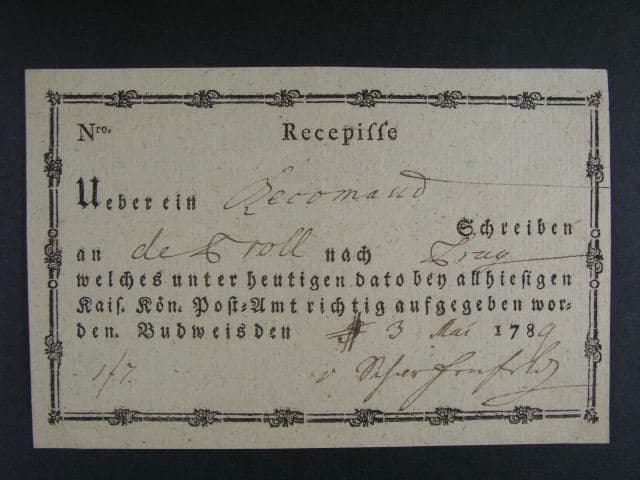 Nro. Recepiſſe
Ueber ein Recomand
Schreiben
an de Troll nach Prag
welches unter heutigen dato bey allhieſigen
Kaiſ. Kön. Poſt-Amt richtig aufgegeben wor-
den. Budweis den 3 Mai 1789
v Scherffenfeld